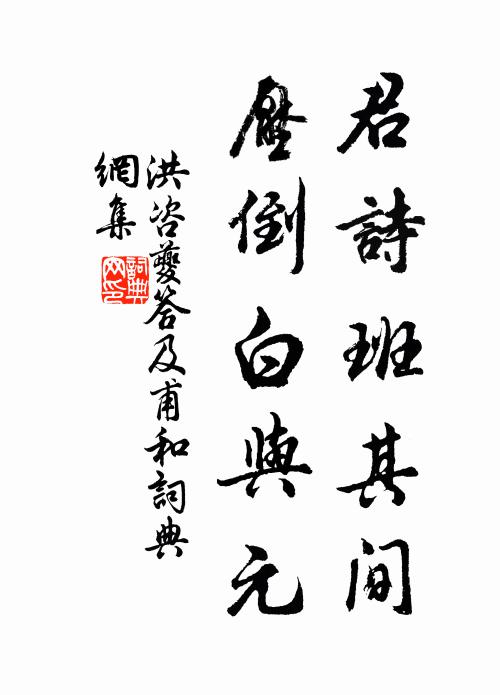 君詩班其間
壓倒白與元
洪咨夔答及甫和詞典
網集
詞典
網印